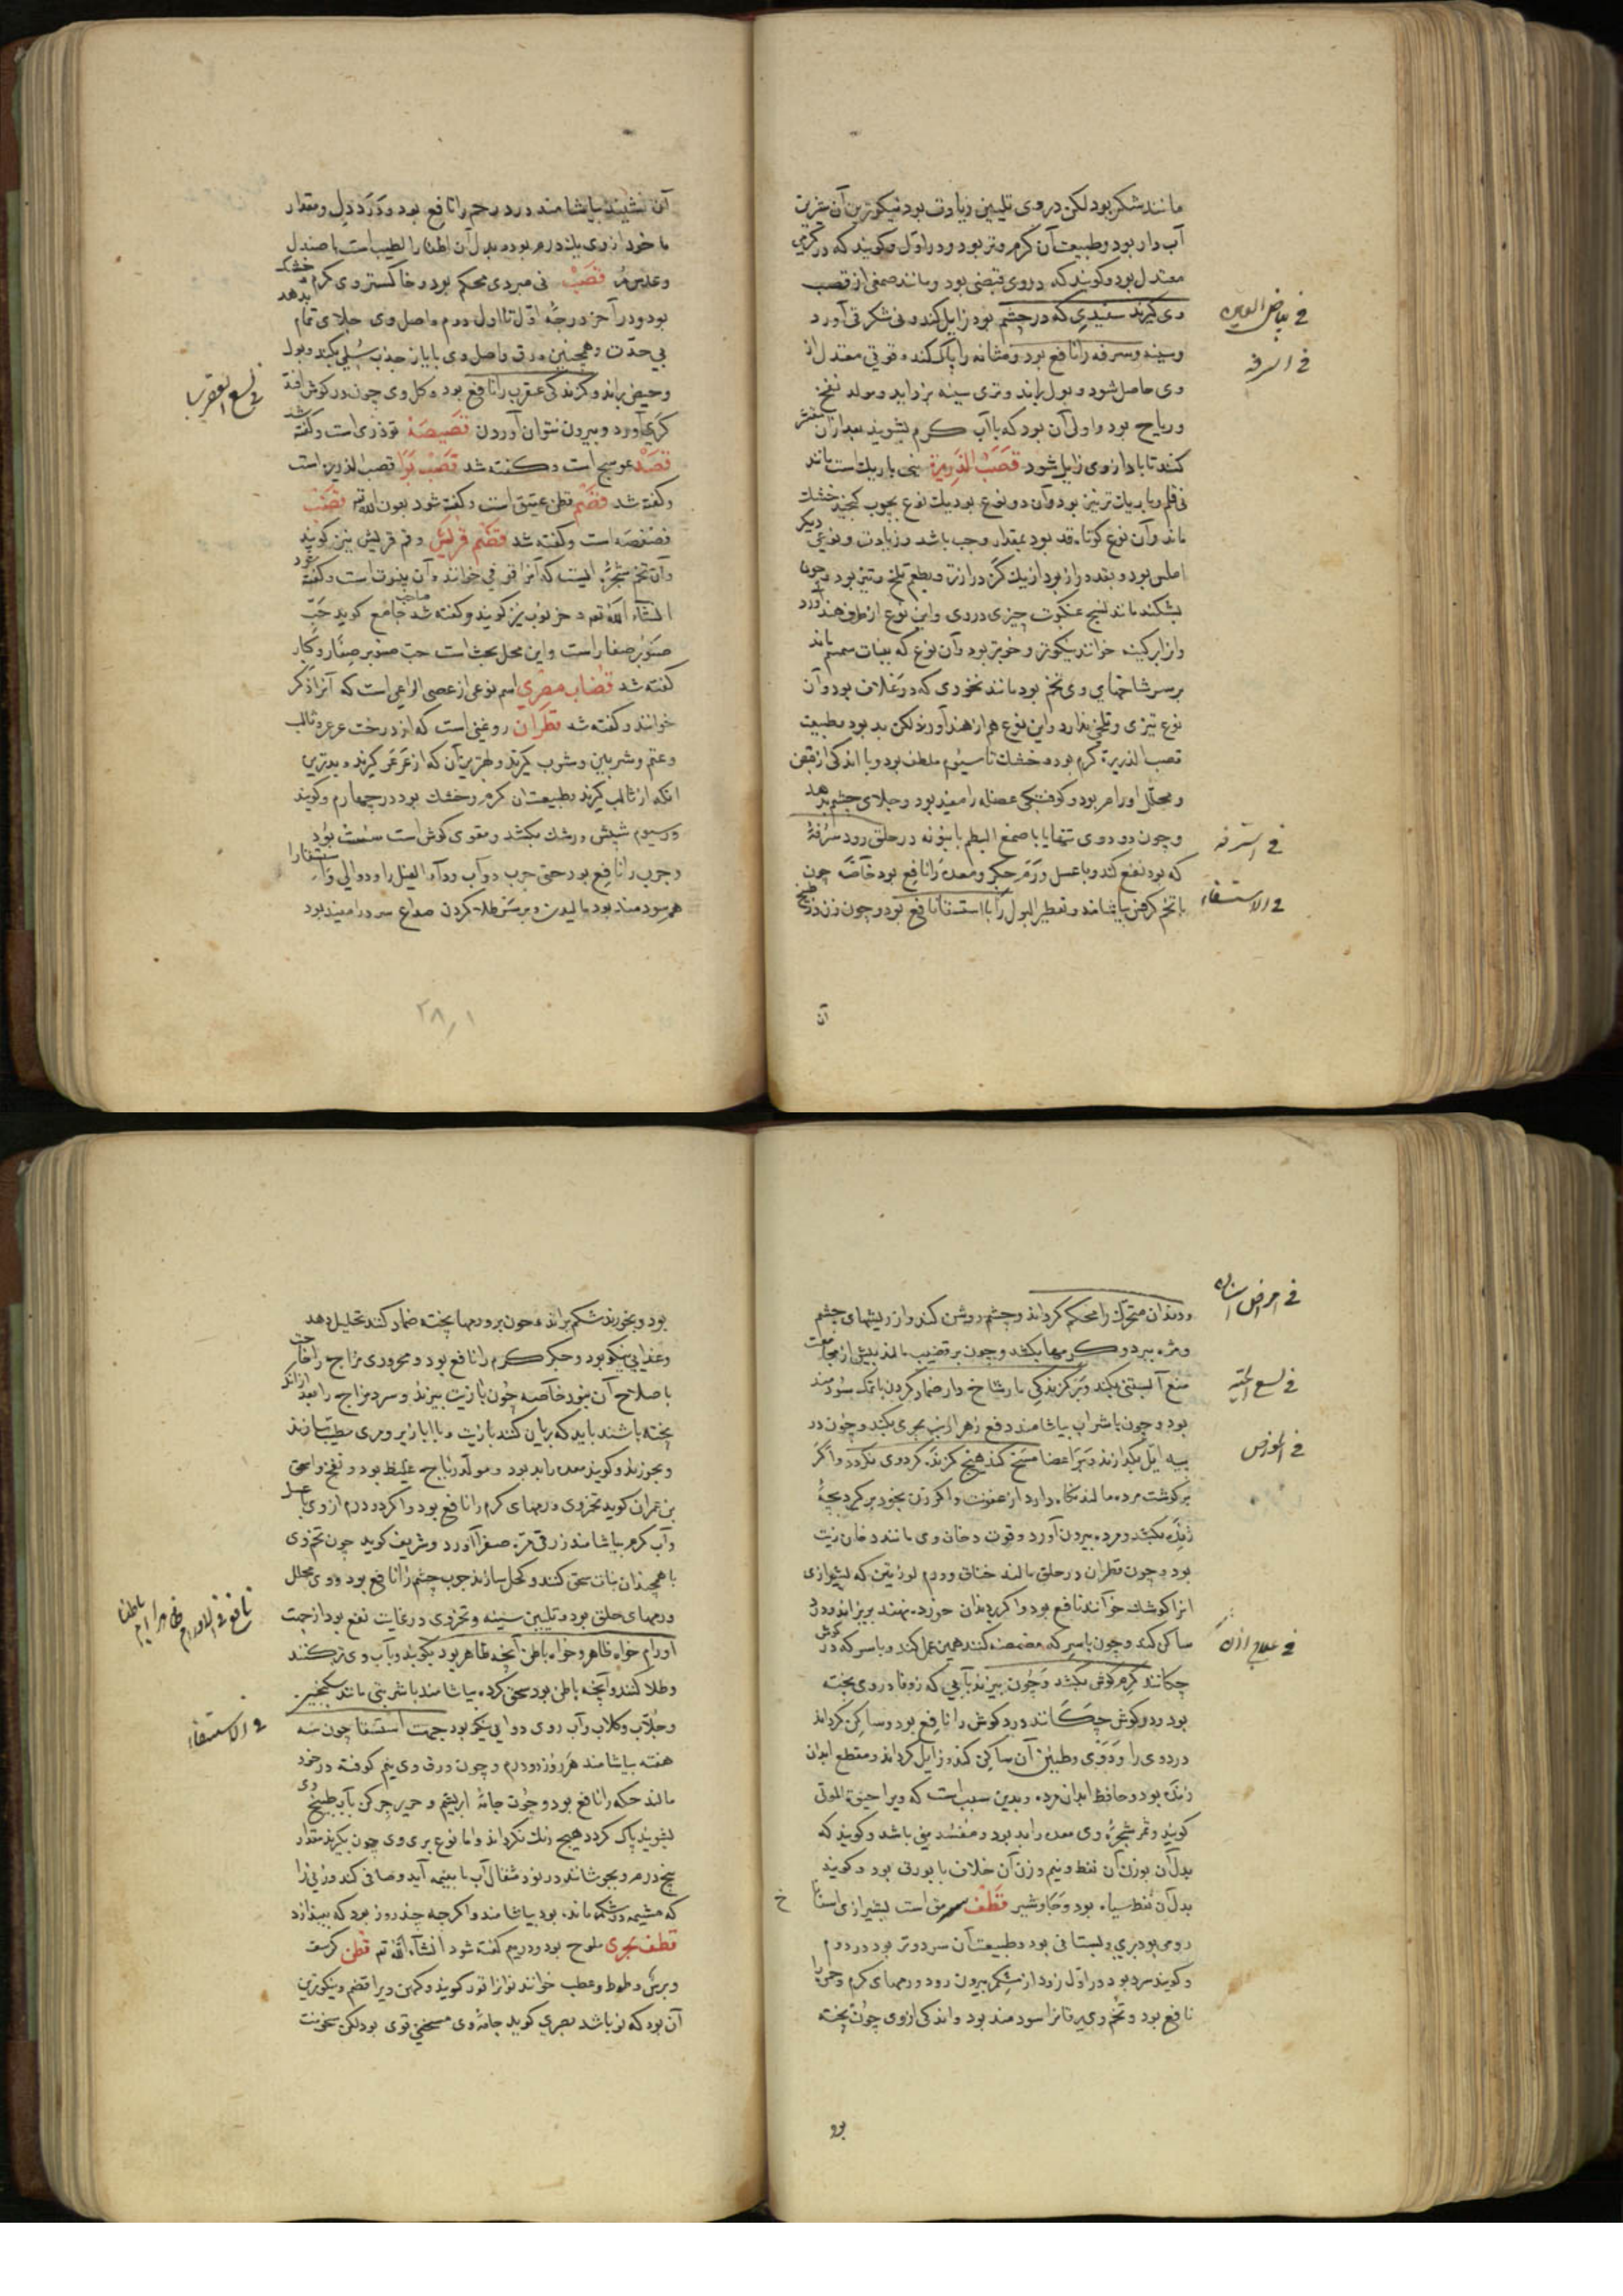 مانند شکر بود لکن در وی تلیین زیادت بود نیکوترین آن
آب دار بود و طبیعت آن گرم و تر بود در اول و گویند که در گرمی
معتدل بود و گویند که در وی قبضی بود و مانند صمغی از قصب
وی گیرند سفیدی که در چشم بود زایل کند و نی شکر قی آورد
فی بیاض العین
وسینه و سرفه را نافع بود و مثانه را پاک کند و قوتی معتدل از
فی السرفه
وی حاصل شود و بول براند و تری سینه بزداید و مولد نفخ
و ریاح بود و اولی آن بود که با آب گرم بشویند بعد از آن مقشر
کنند تا باد از وی زایل شود قصب الذریرة نی باریک است مانند
نی قلم و باریک تر نیز بود و آن دو نوع بود یک نوع بچوب خشک
ماند و آن نوع کوتاه قد بود بمقدار وجب باشد و زیادت و نوعی دیگر
املس بود و بقد دراز بود از یک گز درازتر و بطعم تلخ و تیز بود و چون
بشکنند مانند نسیج عنکبوت چیزی در وی و این نوع از طرف هند آورد
برسر شاخهای وی تخم بود مانند نخودی که در غلاف بود و آن
نوع تیزی و تلخی ندارد و این نوع هم از هند آورند لکن بد بود طبیعت
قصب الذریرة گرم بود و خشک تا سیوم ملطف بود و با اندکی از قبض
و محلل اورام بود و کوفتگی عضله را مفید بود و جلای چشم بدهد
و چون دود وی تنها یا با صمغ البطم در حلق رود سرفهٔ
فی السرفه
که بود نفع کند و با عسل ورم جگر و معده را نافع بود خاصه چون
با تخم کرفس بیاشامند و تقطیر البول را با استسقا نافع بود و چون زن در طبیخ
فی الاستسقاء
آن
آن نشیند یا بیاشامند درد رحم را نافع بود و درد دل و مقدار
ماخوذ از وی یک درم بود و بدل آن اظفار الطیب است یا صندل
قصب نی مبردی محکم بود و خاکستر وی گرم و خشک
بود و در آخر درجهٔ اول تا اول دوم و اصل وی جلای تمام بدهد
بی حدت و همچنین ورق و اصل وی با پیاز جذب سلی بکند و بول
و حیض براند و گزندگی عقرب را نافع بود و گل وی چون در گوش افتد
فی لسع العقرب
کری آورد و بیرون نتوان آوردن قصیصة توذری است و گفته شد
قصد عوسج است و گفته شد قصب بوا قصب الذریره است
و گفته شد قضم قطن عتیق است و گفته شود بعون الله تع
فصفصه است و گفته شد قضم قریش و فم قریش نیز گویند
انشاء الله تع و خرنوب نیز گویند و گفته شد صاحب جامع گوید حب
صنوبر صغار است و این محل بحث است حب صنوبر صغار و کبار
گفته شد قضاب مصری اسم نوعی از عصی الراعی است که آنرا ذکر
خوانند و گفته شد قطران روغنی است که از درخت عرعر و تالب
و عتم و شربین و شوب گیرند و بهترین آن که از عرعر گیرند و بدترین
آنکه از تالب گیرند و طبیعت آن گرم و خشک بود در چهارم و گویند
در سیوم شپش و رشک بکشد و مقوی گوشت سست بود
و جرب را نافع بود حتی جرب دواب و داء الفیل را و دوالی را
هم سودمند بود مالیدن و بر سر طلا کردن صداع سرد را مفید بود
۲۸۱
و دندان متحرک را محکم گرداند و چشم روشن کند و از ریشهای چشم
فی امراض
و مژه ببرد و کرمها بکشد و چون بر قضیب مالند پیش از مجامعت
منع آبستنی بکند و بر گزندگی مار شاخ دار ضماد کردن با نمک سودمند
فی لسع الحیة
بود و چون با شراب بیاشامند دفع زهر ارنب بحری بکند و چون در
پیه ایل بگدازند و بر اعضا مسح کنند هیچ گزنده گرد وی نگردد و اگر
بر گوشت مرده مالند نگاه دارد از عفونت و اگر زن بخود برگیرد بچهٔ
زنده بکشد و مرده بیرون آورد و قوت دخان وی مانند دخان زیت
بود و چون قطران در حلق مالند خناق و ورم لوزتین که بشیرازی
آنرا گوشک خوانند نافع بود و اگر بدندان خورده نهند بریزاند و درد
ساکن کند و چون با سرکه مضمضه کنند همین عمل کند و با سرکه در گوش
فی علاج
چکانند کرم گوش بکشد و چون بپزند بآبی که زوفا در وی پخته
بود و در گوش چکانند درد گوش را نافع بود و ساکن گرداند
درد وی را و دوی و طنین آن ساکن کند و زایل گرداند و مقطع ابدان
زنده بود و حافظ ابدان مرده و بدین سبب است که ویرا حیوة الموتی
گویند و ثمر شجرهٔ وی معده را بد بود و مفسد منی باشد و گویند که
بدل آن بوزن آن نفط و نیم وزن آن بود و گویند
بدل آن نفط سیاه بود و جاوشیر قطف سرمق است بشیرازی
رومی بود بری و بستانی بود و طبیعت آن سرد و تر بود در دوم
و گویند سرد بود در اول زود از شکم بیرون رود و ورمهای گرم
نافع بود و تخم وی یرقانرا سودمند بود و اندکی از وی چون پخته
بود
بود و بخورند شکم براند و چون بر ورمها پخته ضماد کنند تحلیل دهد
وغذایی نیکو بود و جگر گرم را نافع بود و محروری مزاج را
باصلاح آن نبود خاصه چون با زیت بپزند و سرد مزاج را بعد از آنکه
پخته باشند باید که بریان کنند با زیت و با ابازیر و مری مطیب سازند
و بخورند و گویند معده را بد بود و مولد ریاح غلیظ بود و نفخ و اسحق
بن عمران گوید تخم وی ورمهای گرم را نافع بود و اگر دو درم از وی با عسل
و آب گرم بیاشامند زرد قی مره صفرا آورد و شریف گوید چون تخم وی
با همچندان نبات سحق کنند و کحل سازند جرب چشم را نافع بود و وی محلل
ورمهای حلق بود و تلیین سینه و تخم وی در غایت نفع بود از جهت
اورام خواه ظاهر و خواه باطن آنچه ظاهر بود بکوبند و بآب وی تر کنند
وطلا کنند و آنچه باطن بود سحق کرده بیاشامند با شربتی مانند سکنجبین
و جلاب و گلاب و آب وی دوایی نیکو بود جهت استسقا چون سه
فی الاستسقاء
هفته بیاشامند هر روز دو درم و چون ورق وی نیم کوفته در خود
مالند حکه را نافع بود و چون جامهٔ ابریشم و حریر چرکن بآب طبیخ وی
بشویند پاک گردد هیچ رنگ نگرداند و اما نوع بری وی چون بگیرند مقدار
پنج درم و بجوشانند در نود مثقال آب تا بنیمه آید و صافی کنند و زنی را
که مشیمه در شکم مانده بود بیاشامند و اگرچه چند روز بود که بیندازد
قطف بحری ملوح بود و در میم گفته شود انشاء الله تع قطن کرسف
و برس و طوط و عطب خوانند نو آنرا قور گویند و کهن ویرا قضم و نیکوترین
آن بود که نو باشد بصری گوید جامهٔ وی مسخنی قوی بود لکن سخونت